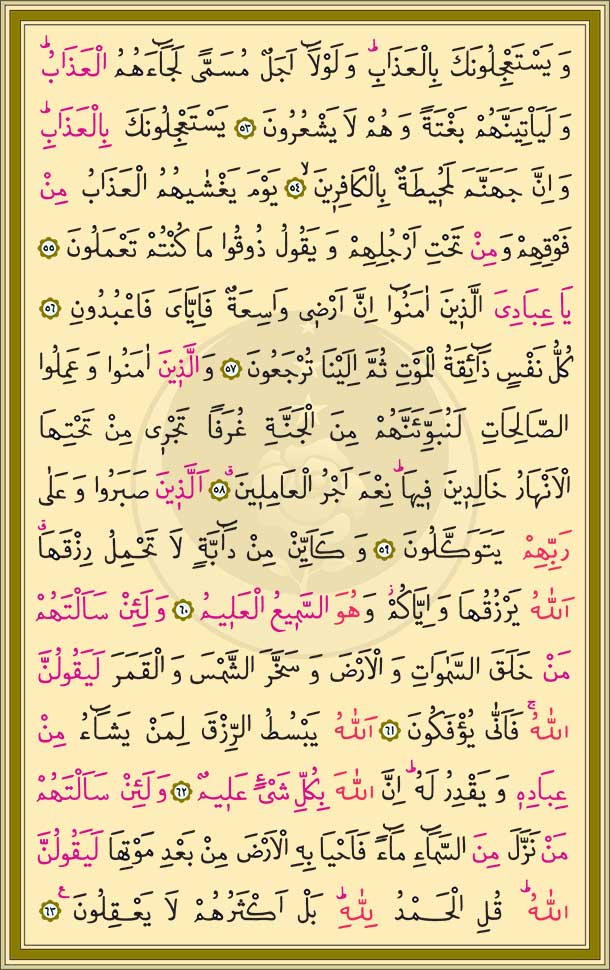 وَ يَسْتَعْجِلُونَكَ بِالْعَذَابِۜ وَ لَوْلَٓا اَجَلٌ مُسَمًّى لَجَٓاءَهُمُ الْعَذَابُۜ
وَ لَيَأْتِيَنَّهُمْ بَغْتَةً وَ هُمْ لَا يَشْعُرُونَ ﴿٥٣﴾ يَسْتَعْجِلُونَكَ بِالْعَذَابِۜ
وَ اِنَّ جَهَنَّمَ لَمُح۪يطَةٌ بِالْكَافِر۪ينَۙ ﴿٥٤﴾ يَوْمَ يَغْشٰيهُمُ الْعَذَابُ مِنْ
فَوْقِهِمْ وَ مِنْ تَحْتِ اَرْجُلِهِمْ وَ يَقُولُ ذُوقُوا مَا كُنْتُمْ تَعْمَلُونَ ﴿٥٥﴾
يَا عِبَادِىَ الَّذ۪ينَ اٰمَنُٓوا اِنَّ اَرْض۪ى وَاسِعَةٌ فَاِيَّاىَ فَاعْبُدُونِ ﴿٥٦﴾
كُلُّ نَفْسٍ ذَٓائِقَةُ الْمَوْتِ ثُمَّ اِلَيْنَا تُرْجَعُونَ ﴿٥٧﴾ وَ الَّذ۪ينَ اٰمَنُوا وَ عَمِلُوا
الصَّالِحَاتِ لَنُبَوِّئَنَّهُمْ مِنَ الْجَنَّةِ غُرَفًا تَجْر۪ى مِنْ تَحْتِهَا
الْاَنْهَارُ خَالِد۪ينَ ف۪يهَاۜ نِعْمَ اَجْرُ الْعَامِل۪ينَۗ ﴿٥٨﴾ اَلَّذ۪ينَ صَبَرُوا وَ عَلٰى
رَبِّهِمْ يَتَوَكَّلُونَ ﴿٥٩﴾ وَ كَاَيِّنْ مِنْ دَٓابَّةٍ لَا تَحْمِلُ رِزْقَهَاۗ
اَللّٰهُ يَرْزُقُهَا وَ اِيَّاكُمْۘ وَ هُوَ السَّم۪يعُ الْعَل۪يمُ ﴿٦٠﴾ وَ لَئِنْ سَاَلْتَهُمْ
مَنْ خَلَقَ السَّمٰوَاتِ وَ الْاَرْضَ وَ سَخَّرَ الشَّمْسَ وَ الْقَمَرَ لَيَقُولُنَّ
اللّٰهُۚ فَاَنّٰى يُؤْفَكُونَ ﴿٦١﴾ اَللّٰهُ يَبْسُطُ الرِّزْقَ لِمَنْ يَشَٓاءُ مِنْ
عِبَادِه۪ وَ يَقْدِرُ لَهُۜ اِنَّ اللّٰهَ بِكُلِّ شَىْءٍ عَل۪يمٌ ﴿٦٢﴾ وَ لَئِنْ سَاَلْتَهُمْ
مَنْ نَزَّلَ مِنَ السَّمَٓاءِ مَٓاءً فَاَحْيَا بِهِ الْاَرْضَ مِنْ بَعْدِ مَوْتِهَا لَيَقُولُنَّ
اللّٰهُۜ قُلِ الْحَمْدُ لِلّٰهِۜ بَلْ اَكْثَرُهُمْ لَا يَعْقِلُونَ ﴿٦٣﴾ ع